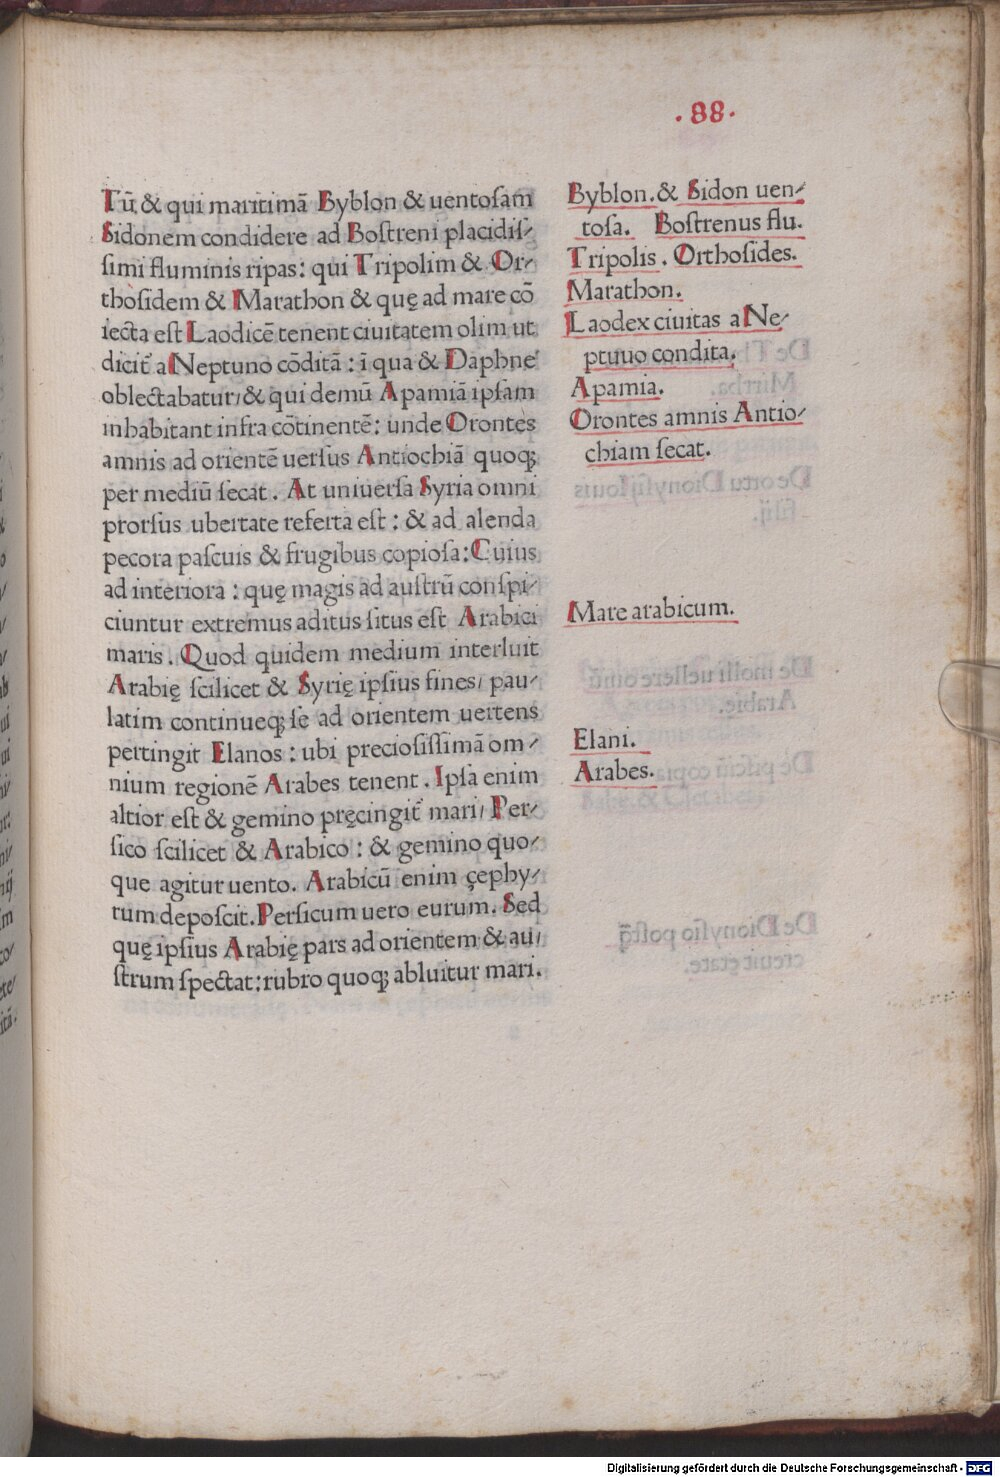 .88.
Tū & qui maritimā Byblon & uentoſam
Sidonem condidere ad Boſtreni placidiſ⸗
ſimi fluminis ripas: qui Tripolim & Or⸗
thoſidem & Marathon & quę ad mare cō
iecta eſt Laodicē tenent ciuitatem olim ut
dicit᷑ a Neptuno cōditā : ī qua & Daphne
oblectabatur/ & qui demū Apamiā ipſam
inhabitant infra cōtinentē: unde Orontes
amnis ad orientē uerſus Antiochiā quoqꝫ
per mediū ſecat. At uniuerſa Syria omni
prorſus ubertate referta eſt : & ad alenda
pecora paſcuis & frugibus copioſa: Cuius
ad interiora : quę magis ad auſtrū conſpi⸗
ciuntur extremus aditus ſitus eſt Arabici
maris. Quod quidem medium interluit
Arabię ſcilicet & Syrię ipſius fines/ pau⸗
latim continueqꝫ ſe ad orientem uertens
pertingit Elanos : ubi precioſiſſimā om⸗
nium regionē Arabes tenent. Ipſa enim
altior eſt & gemino pręcingit᷑ mari/ Per⸗
ſico ſcilicet & Arabico : & gemino quo⸗
que agitur uento. Arabicū enim çephy⸗
rum depoſcit. Perſicum uero eurum. Sed
quę ipſius Arabię pars ad orientem & au/
ſtrum ſpectat: rubro quoqꝫ abluitur mari.
Byblon. & Sidon uen⸗
toſa. Boſtrenus flu.
Tripolis. Orthoſides.
Marathon.
Laodex ciuitas a Ne⸗
ptuuo condita.
Apamia.
Orontes amnis Antio⸗
chiam ſecat.
Mare arabicum.
Elani.
Arabes.
Digitalisierung gefördert durch die Deutsche Forschungsgemeinschaft - DFG